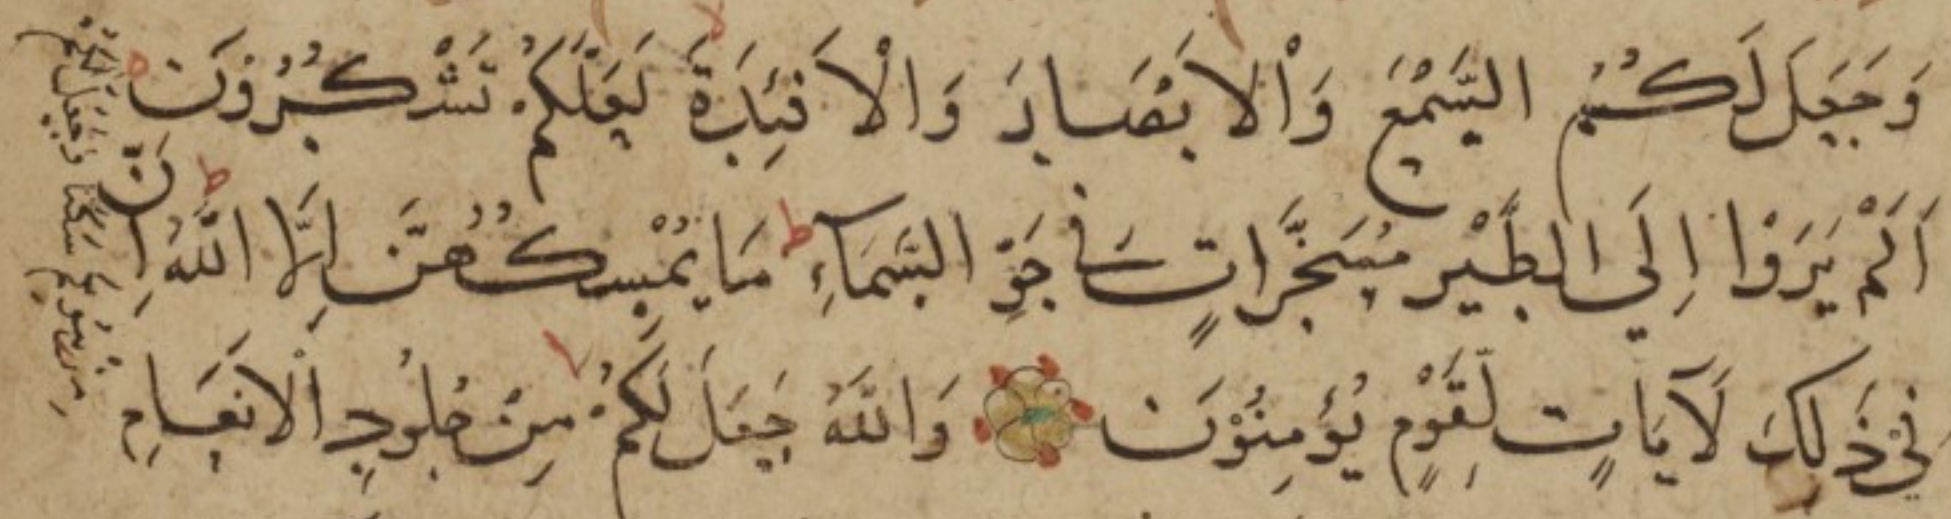 وَجَعَلَ لَكُمُ السَّمْعَ وَاْلاَبْصَارَ وَاْلاَفْئِدَةَ لَعَلَّكُمْ تَشْكُرُوْنَ
اَلَمْ يَرَوْا اِلَي الطَّيْرِ مُسَخَّرَاتٍ فِي جَوِّ السَّمَآءِ مَا يُمْسِكُهُنَّ اِلَّا اللّٰهُ اِنَّ
فِيْ ذَلِكَ لَآيَاتٍ لِّقَوْمٍ يُؤْمِنُوْنَ وَاللّٰهُ جَعَلَ لَكُمْ مِنْ جُلُوْدِ اْلاَنْعَامِ
وَاللّٰهُ جَعَلَ لَكُمْ مِنْ بُيُوتِكُمْ سَكَنًا وَجَعَلَ لَكُمْ